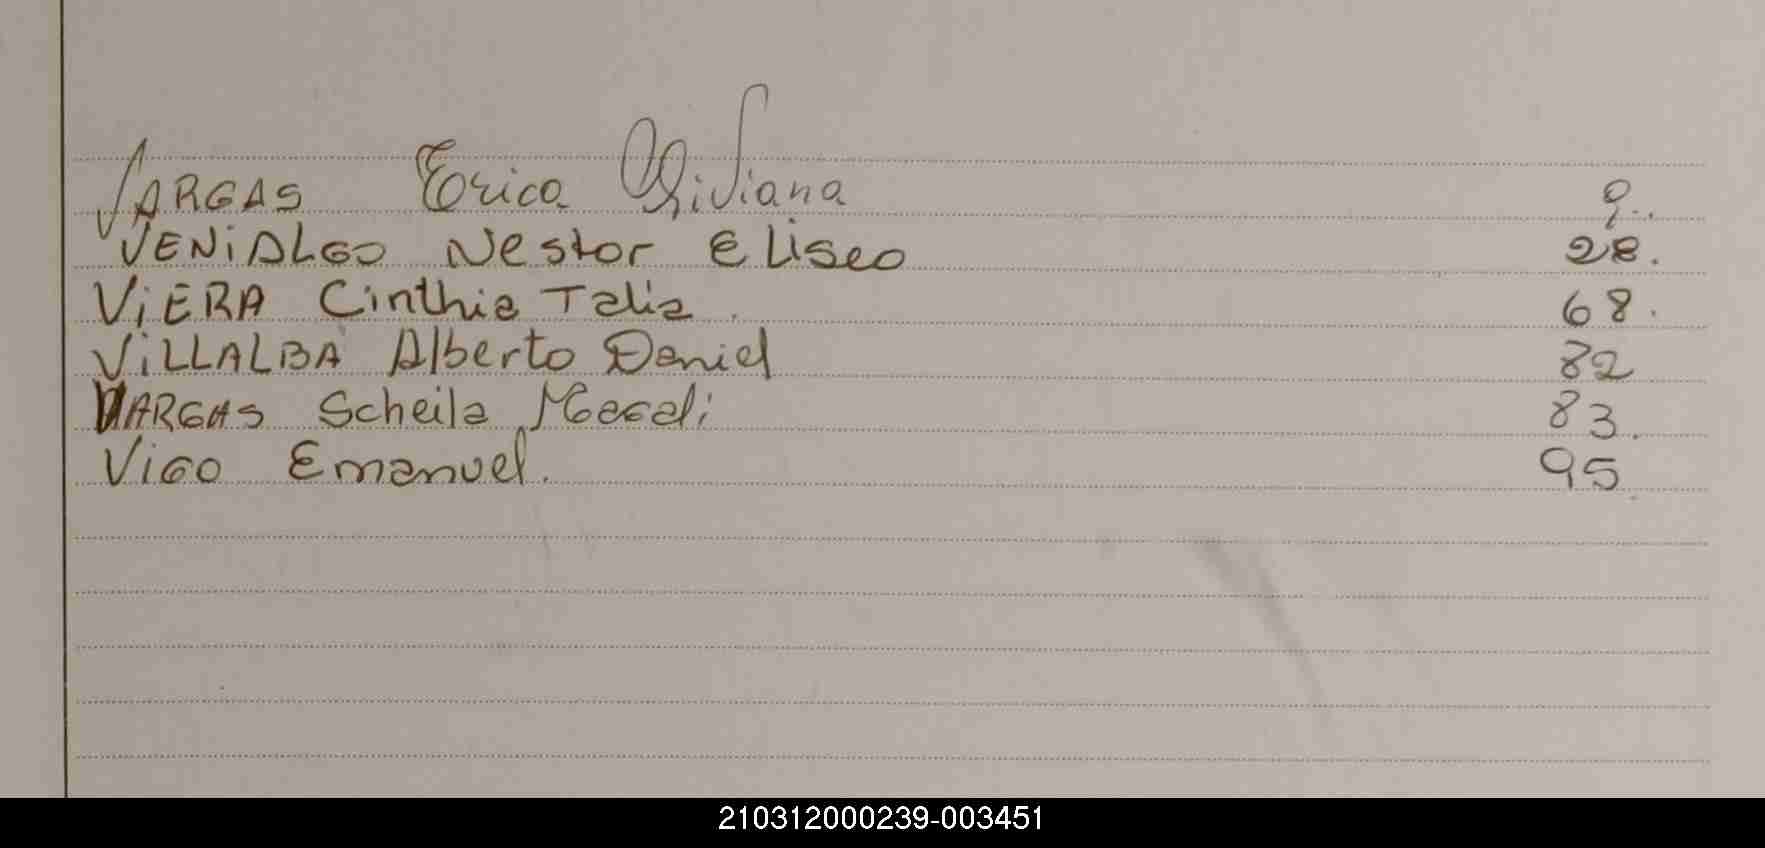 VARGAS Erica Viviana 9.
VENiALGO Nestor ELiseo 28.
ViERA Cinthia Talia 68.
ViLLALBA Alberto Daniel 82
VARGAS Scheila Magali 83.
ViGO Emanuel. 95
210312000239-003451